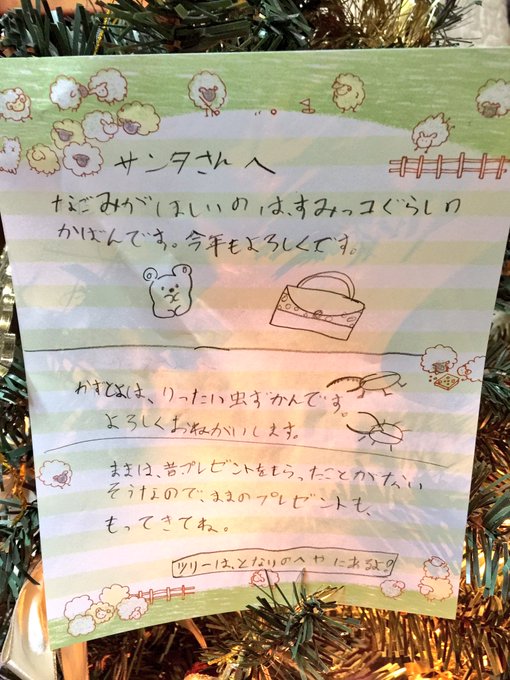 サンタさんへ
なごみがほしいのは、すみっコぐらしの
かばんです。今年もよろしくです。
かずとよは、りったい虫ずかんです。
よろしくおねがいします。
ままは、昔プレゼントをもらったことがない
そうなので、ままのプレゼントも、
もってきてね。
ツリーは、となりのへやにあるよ。